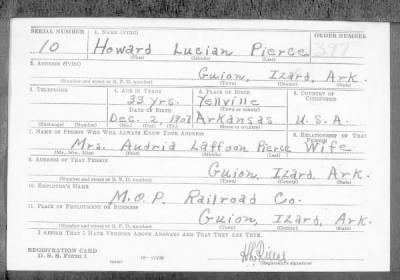 SERIAL NUMBER 1. NAME (Print) ORDER NUMBER
10 Howard Lucian Pierce 397
(First) (Middle) (Last)
2. ADDRESS (Print)
Guion, Izard, Ark.
(Number and street or R. F. D. number) (Town) (County) (State)
3. TELEPHONE 4. AGE IN YEARS 5. PLACE OF BIRTH 6. COUNTRY OF CITIZENSHIP
33 yrs. Yellville
DATE OF BIRTH (Town or county)
Dec. 2, 1907 Arkansas U.S.A.
(Exchange) (Number) (Mo.) (Day) (Yr.) (State or country)
7. NAME OF PERSON WHO WILL ALWAYS KNOW YOUR ADDRESS 8. RELATIONSHIP OF THAT PERSON
Mrs. Audria Laffoon Pierce Wife
(Mr., Mrs., Miss) (First) (Middle) (Last)
9. ADDRESS OF THAT PERSON
Guion, Izard, Ark.
(Number and street or R. F. D. number) (Town) (County) (State)
10. EMPLOYER'S NAME
M.O.P. Railroad Co.
11. PLACE OF EMPLOYMENT OR BUSINESS
Guion, Izard, Ark.
(Number and street or R. F. D. number) (Town) (County) (State)
I AFFIRM THAT I HAVE VERIFIED ABOVE ANSWERS AND THAT THEY ARE TRUE.
REGISTRATION CARD
D. S. S. Form 1
(Registrant's signature)